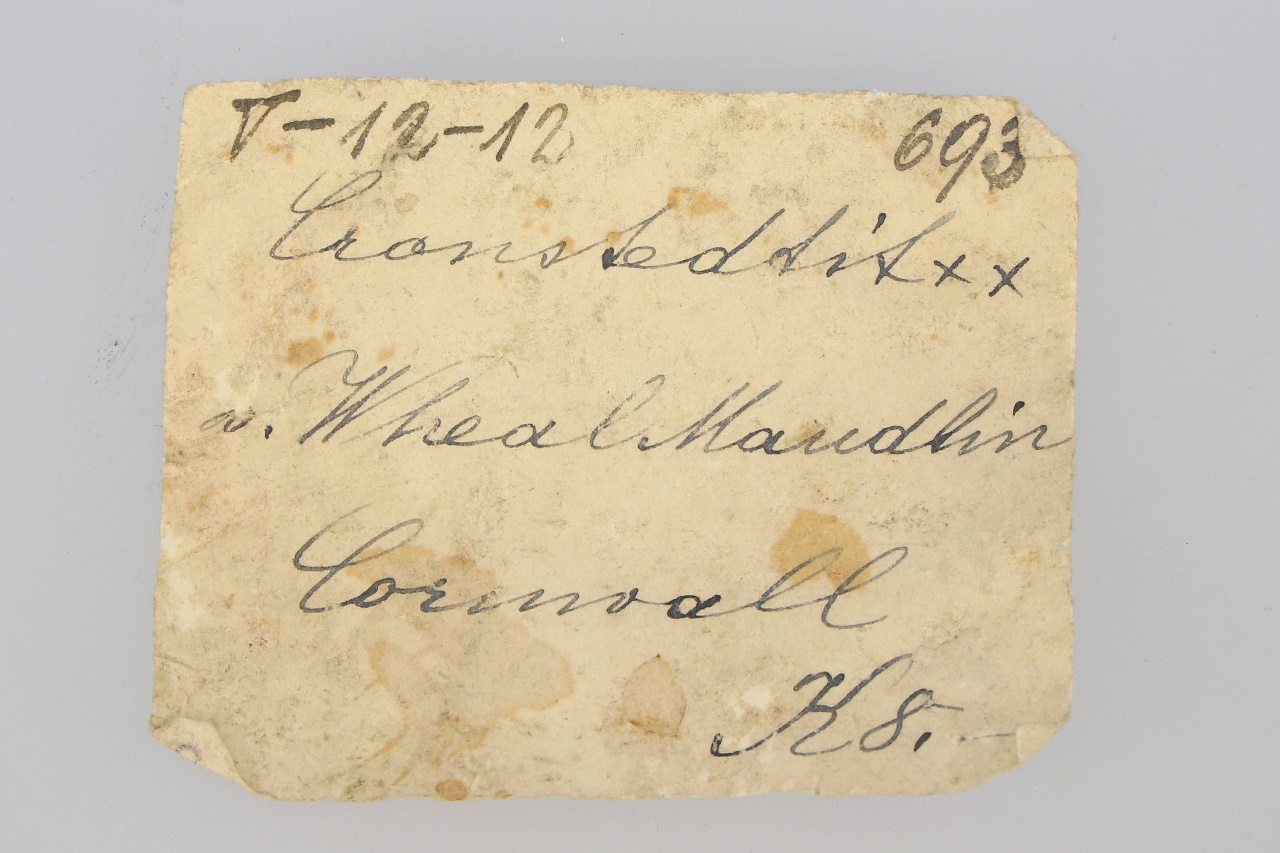 V-12-12 693
Cronstedtit xx
v. Wheal Maudlin
Cornwall
K 8.-